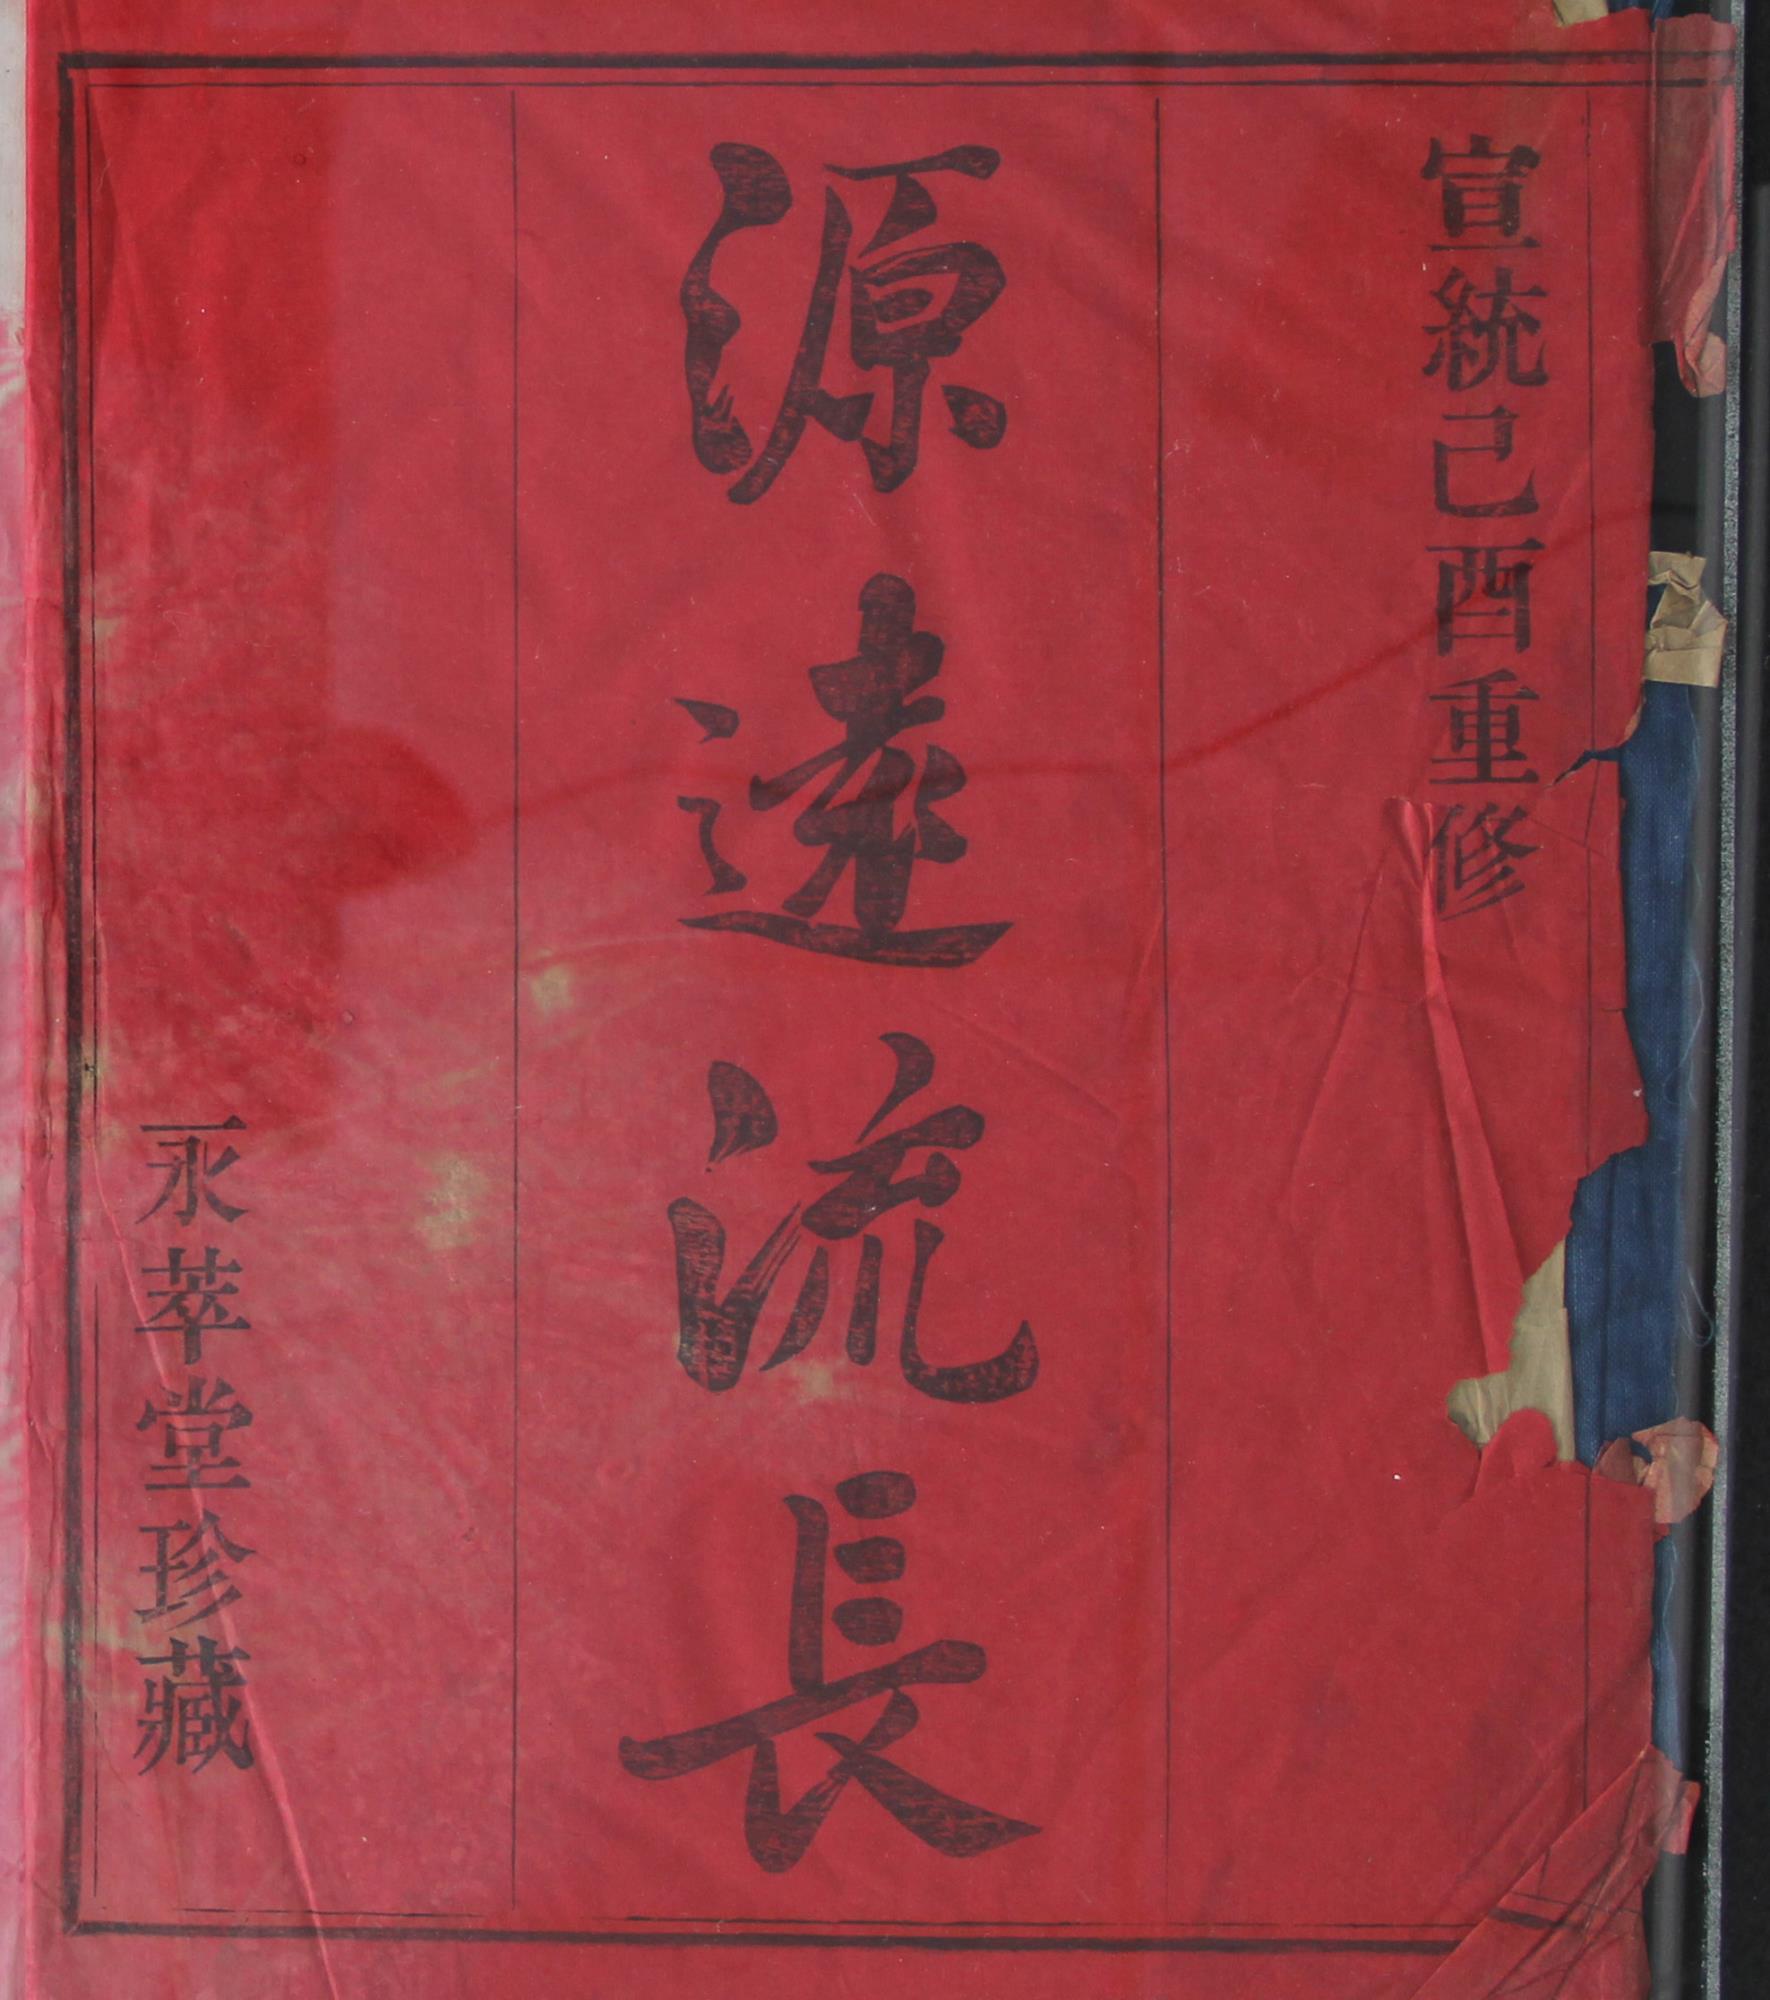 宣統己酉重修
源遠流長
永萃堂珍藏